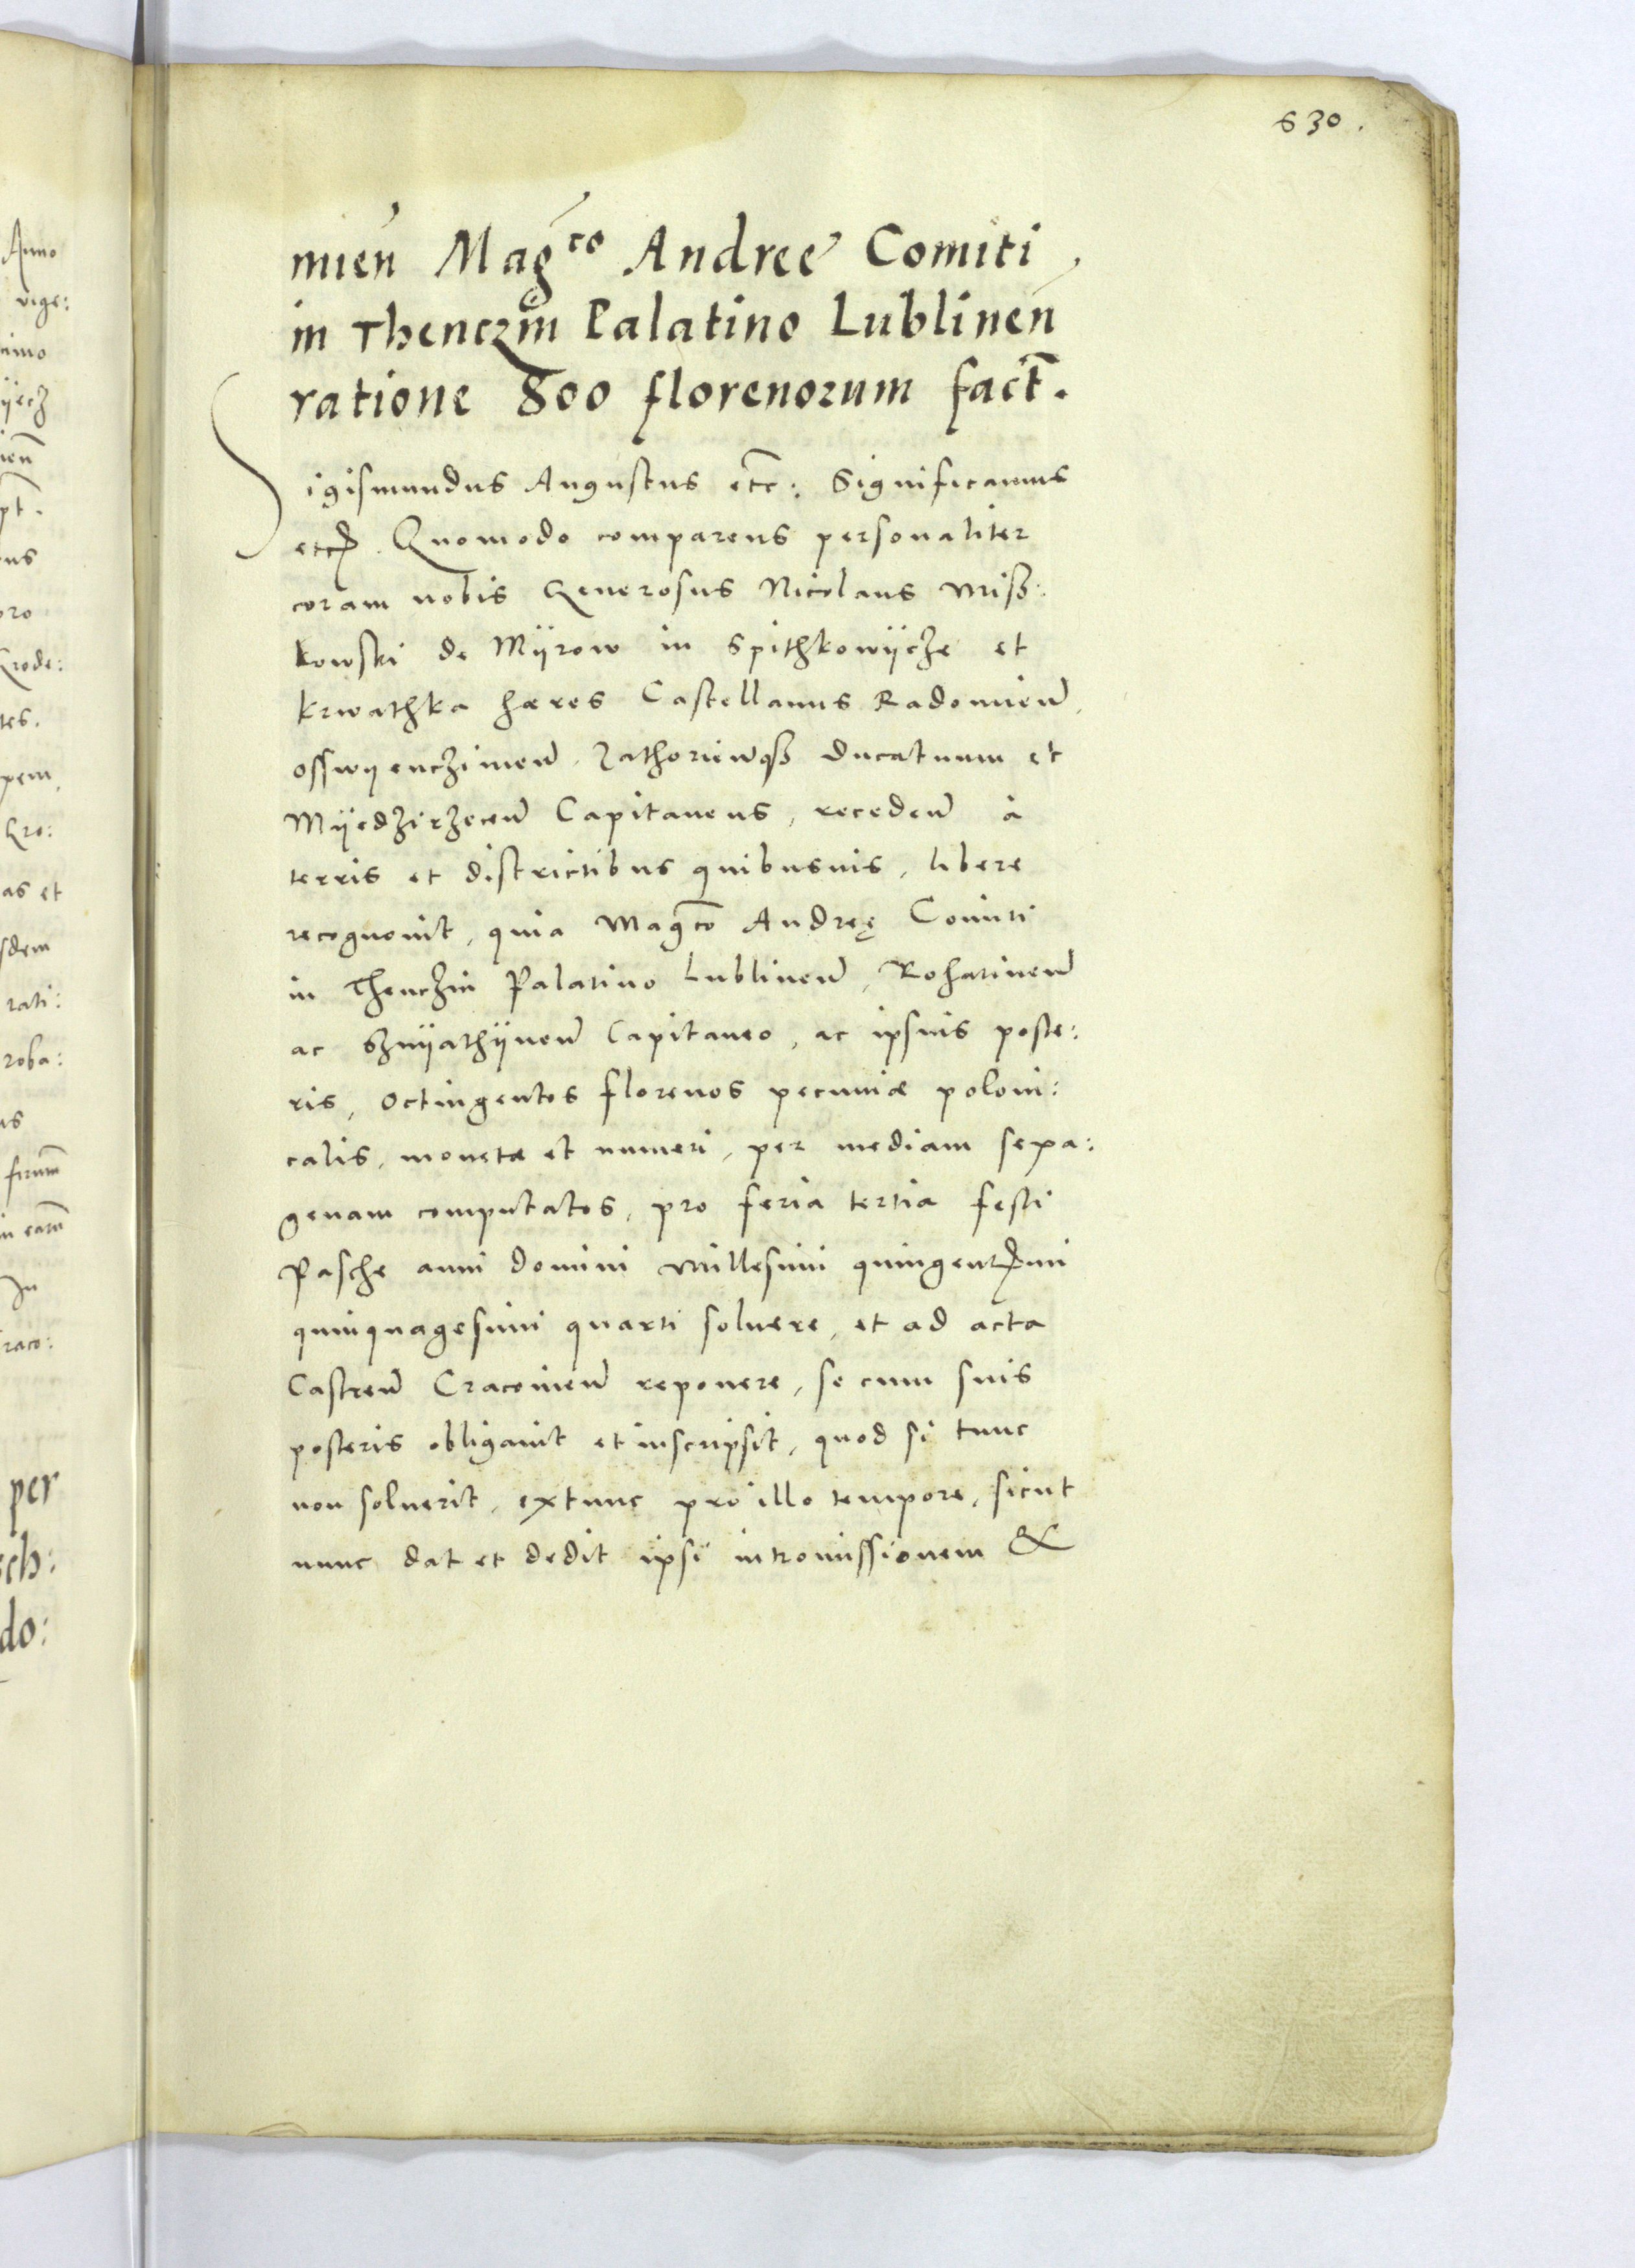 630.
mien̄ Mag^co Andreę Comiti
in Thenczin̄ Palatino Lublinen̄
ratione 800 florenorum fact̄.
Sigismundus Augustus etc̄: Significamus
etc. Quomodo comparens personaliter
coram nobis Generosus Nicolaus Miss:
kowski de Mÿrow in Spithkowÿcze et
krwathka hæres Castellanus Radomien̄,
osswyenczimen̄, Zathorien̄q3 ducatuum et
Mÿedzirzecen̄ Capitaneus, receden̄ à
terris et districtibus quibusuis, libere
recognouit, quia Maḡco Andreę Comiti
in Thenczin Palatino Lublinen̄, Rohatinen̄
ac Sznÿathÿnen̄ Capitaneo, ac ipsius poste:
ris, octingentos florenos pecuniæ poloni:
calis, monetæ et numeri, per mediam sexa:
genam computatos, pro feria tertia festi
Pasche anni domini millesimi quingentesimi
quinquagesimi quarti soluere, et ad acta
Castren̄ Cracouien̄ reponere, se cum suis
posteris obligauit et inscripsit, quod si tunc
non soluerit, extunc pro illo tempore, sicut
nunc dat et dedit ipsi intromissionem &
Anno
vige:
pro
tes.
as et
rati:
roba:
In
raco:
per
sch:
do: